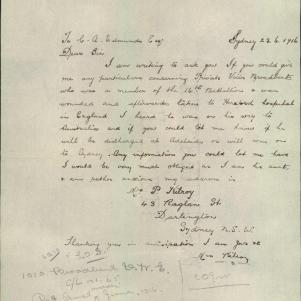 To C. A. Edmunds Esq Sydney 23.6.1916
Dear Sir
I am writing to ask you if you could give
me any particulars concerning Private Victor Broadbent
who was a member of the 16th Battalion & was
wounded and afterwards taken to Hospital
in England I heard he was on his way to
Australia and if you could let me know if he
will be discharged at Adelaide or will come on
to Sydney. Any information you could let me have
I would be very much obliged as I am his aunt
& am rather anxious my address is
Mrs P Kilroy
43 Raglan St
Darlington
Sydney N.S.W.
Thanking you in anticipation I am Yours
Mrs Kilroy
1010 Broadbent